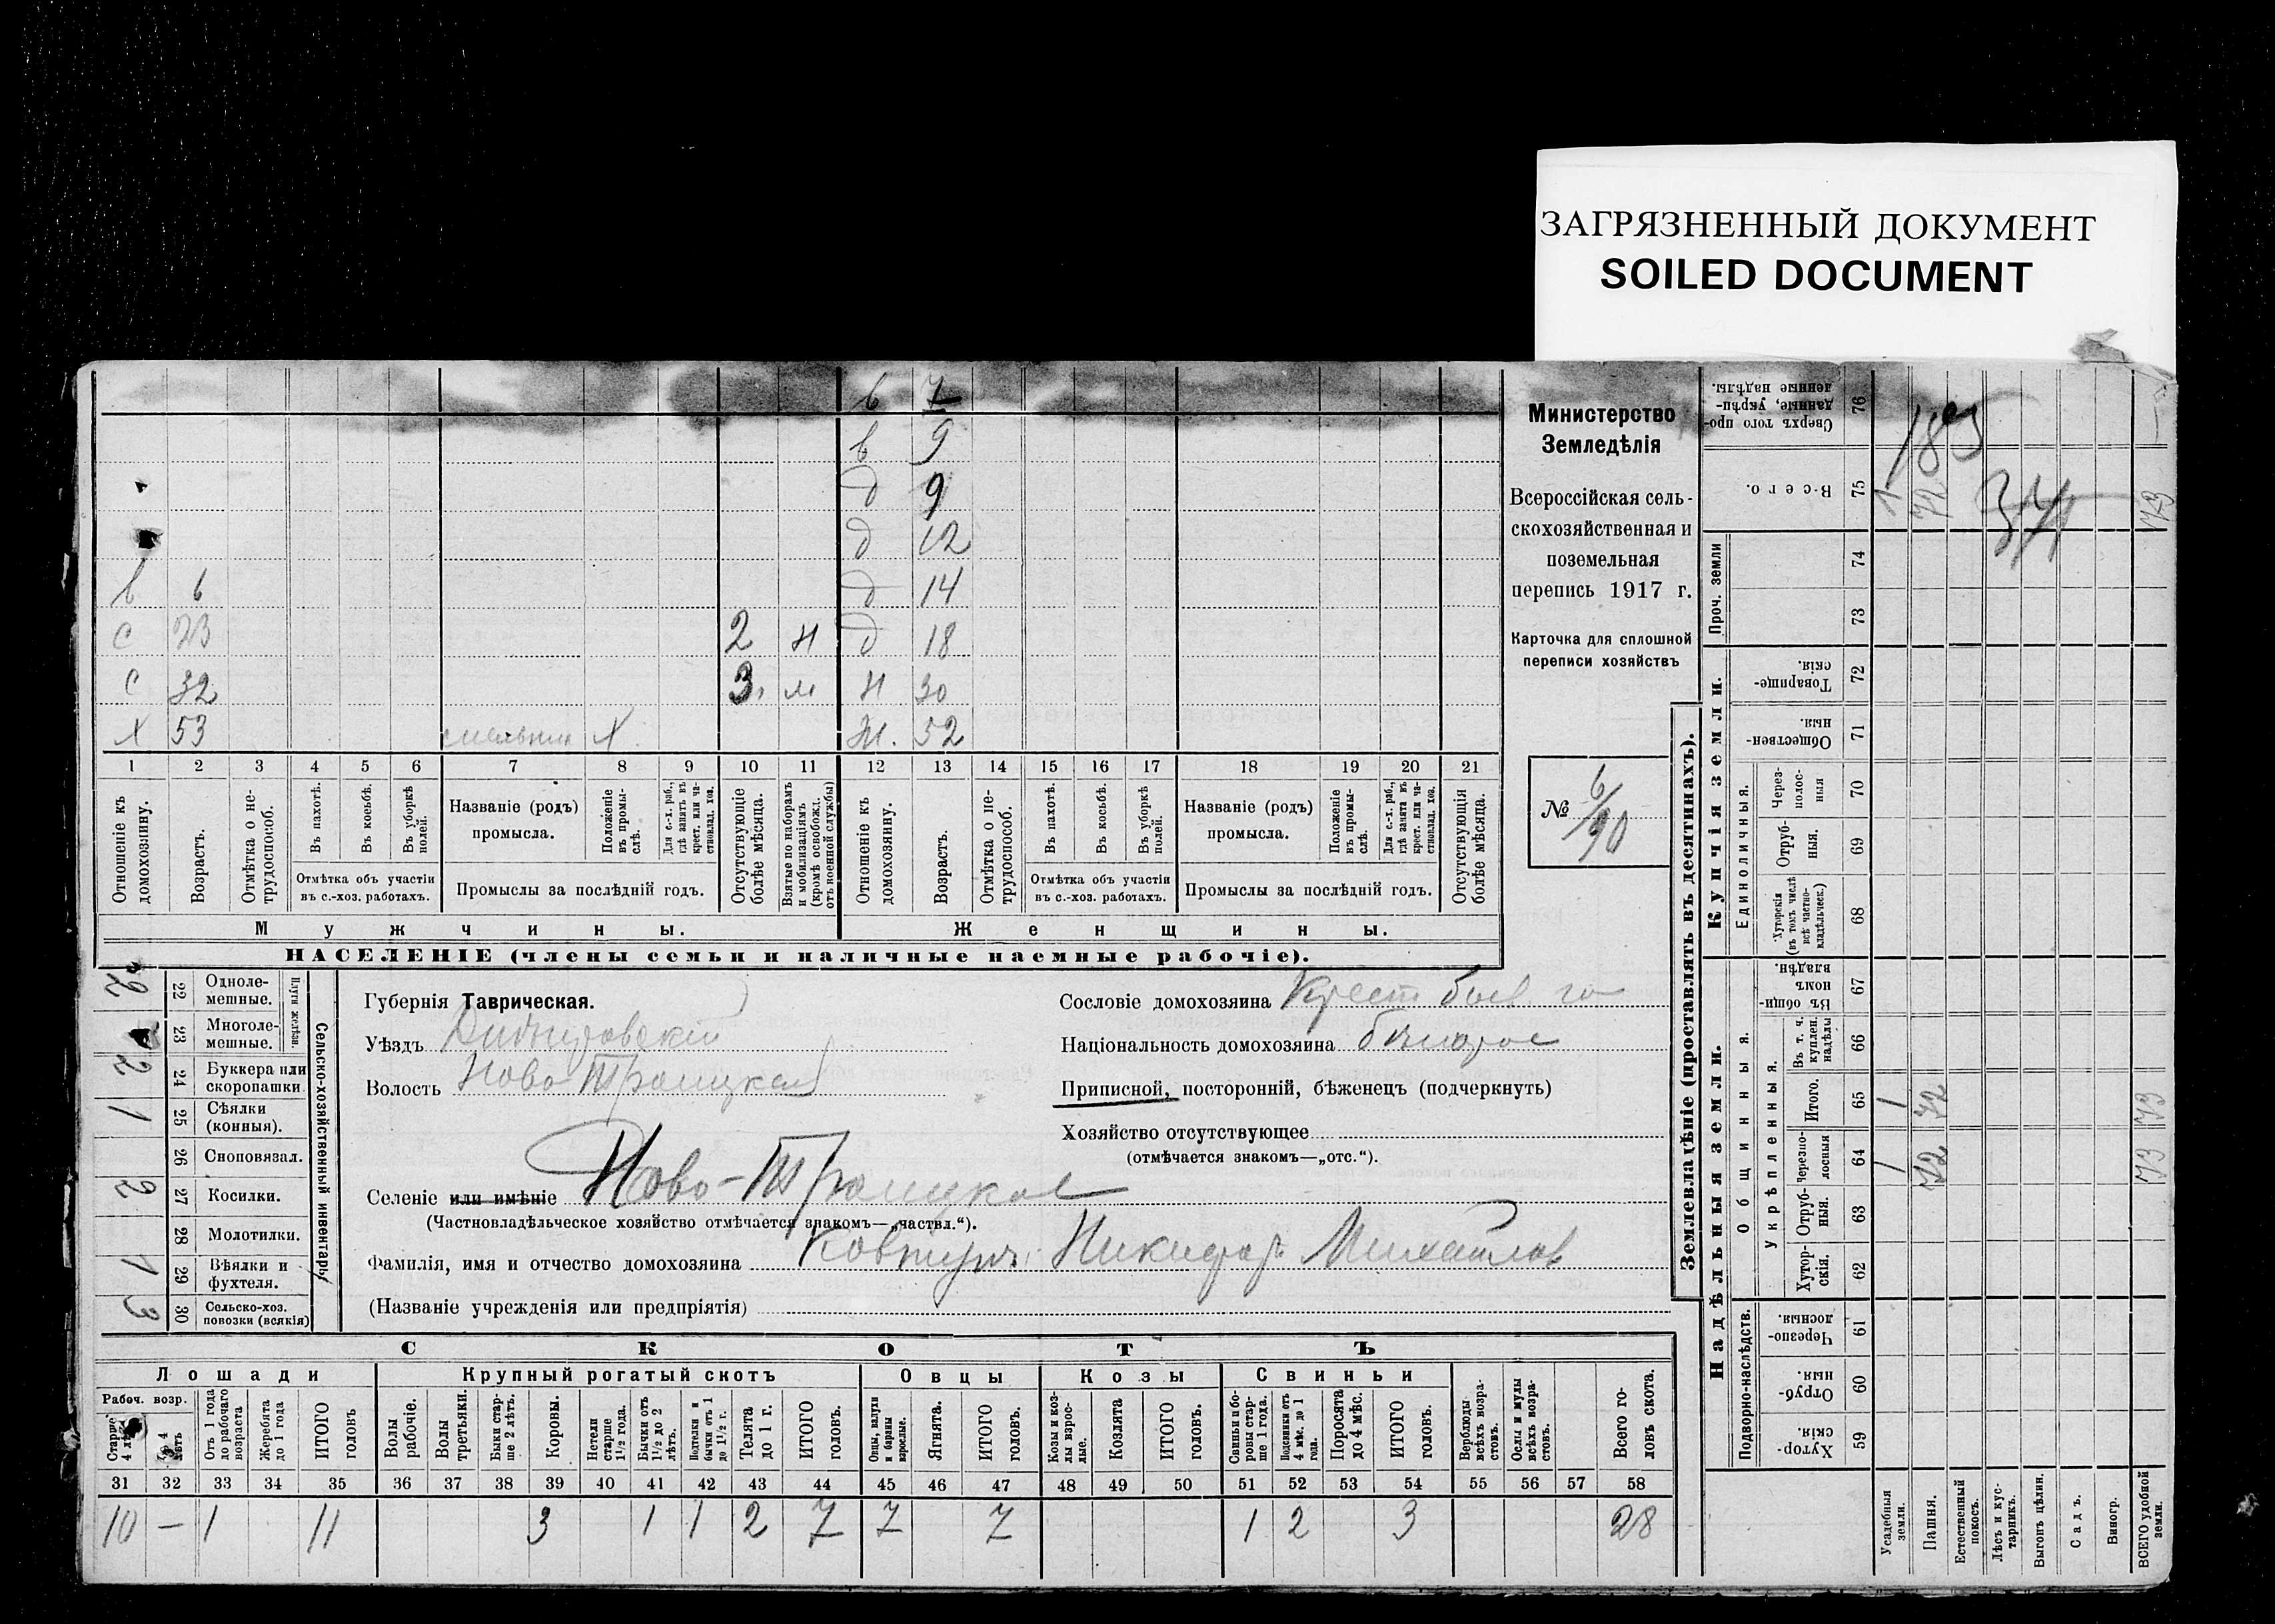 ЗАГРЯЗНЕННЫЙ ДОКУМЕНТ
SOILED DOCUMENT
в 7
в 9
д 9
д 12
в 6 д 14
с 23 2 н д 18
с 32 3 м н 30
х 53 х ж. 52
1 2 3 4 5 6 7 8 9 10 11 12 13 14 15 16 17 18 19 20 21
Отношеніе къ домохозяину.
Возрастъ.
Отмѣтка о не-трудоспособ.
Въ пахотѣ.
Въ косьбѣ.
Въ уборкѣ полей.
Отмѣтка объ участіи въ с.-хоз. работахъ.
Названіе (родъ) промысла.
Положеніе въ промы-слѣ.
Для с.-х. раб., гдѣ занятъ въ крест. или ча-стновлад. хоз.
Промыслы за послѣдній годъ.
Отсутствующіе болѣе мѣсяца.
Взятые по наборамъ и мобилизаціямъ (кромѣ освобожд. отъ военной службы)
Отношеніе къ домохозяину.
Возрастъ.
Отмѣтка о не-трудоспособ.
Въ пахотѣ.
Въ косьбѣ.
Въ уборкѣ полей.
Отмѣтка объ участіи въ с.-хоз. работахъ.
Названіе (родъ) промысла.
Положеніе въ промы-слѣ.
Для с.-х. раб., гдѣ занята въ крест. или ча-стновлад. хоз.
Промыслы за послѣдній годъ.
Отсутствующія болѣе мѣсяца.
Мужчины. Женщины.
НАСЕЛЕНІЕ (члены семьи и наличные наемные рабочіе).
Министерство
Земледѣлія
Всероссійская сель-
скохозяйственная и
поземельная
перепись 1917 г.
Карточка для сплошной
переписи хозяйствъ
№ 6/90
Сельско-хозяйственный инвентарь
Плуги желѣзн.
22 Одноле-мешные. 2
23 Многоле-мешные.
24 Буккера или скоропашки 2
25 Сѣялки (конныя). 1
26 Сноповязал.
27 Косилки. 2
28 Молотилки.
29 Вѣялки и фухтеля. 1
30 Сельско-хоз. повозки (всякія) 3
Губернія Таврическая.
Уѣздъ Днѣпровскій
Волость Ново-Троицкая
Селеніе или имѣніе Ново-Троицкое
(Частновладѣльческое хозяйство отмѣчается знакомъ—„частвл.“).
Фамилія, имя и отчество домохозяина Никифоръ Михайлов
(Названіе учрежденія или предпріятія)
Сословіе домохозяина Крест
Національность домохозяина
Приписной, посторонній, бѣженецъ (подчеркнуть)
Хозяйство отсутствующее
(отмѣчается знакомъ—„отс.“).
СКОТЪ
Лошади Крупный рогатый скотъ Овцы Козы Свиньи
Рабоч. возр.
Старше 4 лѣтъ
До 4 лѣтъ
Отъ 1 года до рабочаго возраста
Жеребята до 1 года
ИТОГО головъ
Волы рабочіе.
Волы третьяки.
Быки стар-ше 2 лѣтъ.
Коровы.
Нетели старше 1½ года.
Бычки отъ 1½ до 2 лѣтъ.
Подтелки и бычки отъ 1 до 1½ г.
Телята до 1 г.
ИТОГО головъ.
Овцы, валухи и бараны взрослые.
Ягнята.
ИТОГО головъ.
Козы и коз-лы взрос-лые.
Козлята
ИТОГО головъ.
Свиньи и бо-ровы стар-ше 1 года.
Подсвинки отъ 4 мѣс. до 1 года.
Поросята до 4 мѣс.
ИТОГО головъ.
Верблюды всѣхъ возра-стовъ.
Ослы и мулы всѣхъ возра-стовъ.
Всего го-ловъ скота.
31 32 33 34 35 36 37 38 39 40 41 42 43 44 45 46 47 48 49 50 51 52 53 54 55 56 57 58
10 — 1 11 3 1 1 2 7 7 7 1 2 3 28
Землевладѣніе (проставлять въ десятинахъ).
Купчія земли.
Надѣльныя земли.
Сверхъ того про-данные, укрѣп-ленные надѣлы. 76
Всего. 75 1 72 73
185
34
Проч. земли 74
73
Товарище-скія. 72
Обществен-ныя. 71
Единоличныя.
Через-полос-ныя 70
Отруб-ныя. 69
Хуторскія (въ томъ числѣ всѣ частно-владѣльческ.) 68
Общинныя.
Въ общи-номъ владѣн. 67
Укрѣпленныя.
Въ т. ч. куплен. надѣлы 66
Итого. 65 1 72 73
Черезпо-лосныя 64 1 72 73
Отруб-ныя. 63
Хутор-скія. 62
Подворно-наслѣдств.
Черезпо-лосныя. 61
Отруб-ныя. 60
Хутор-скія. 59
Усадебныя земли.
Пашня.
Естественный покосъ.
Лѣсъ и кус-тарникъ.
Выгонъ цѣлин.
Садъ.
Виногр.
ВСЕГО удобной земли.